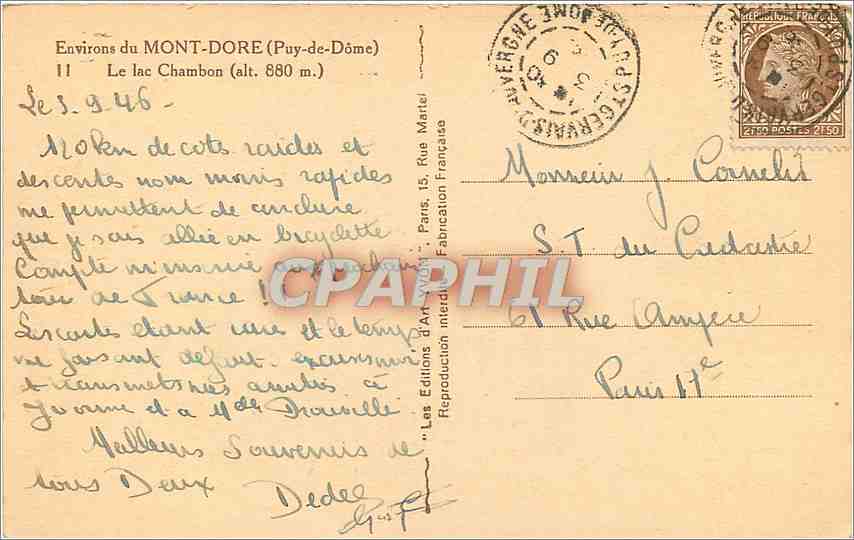 Environs du MONT-DORE (Puy-de-Dôme)
11 Le lac Chambon (alt. 880 m.)
Le 9 46 -
120 km de cotes raides et
descentes non moins rapides
me permettent de conclure
que je sais allée en bicyclette
Compte m'inscrire au prochain
tour de France !!
Les cartes étant rares et le temps
me faisant défaut - excuses moi
et transmets nos amitiés à
Yvonne et a Mde
Meilleurs Souvenirs de
tous Deux
Dédé
"Les Editions d'Art YVON", Paris, 15, Rue Martel
Reproduction interdite Fabrication Française
CPAPHIL
ST GERVAIS-D'AUVERGNE
PUY DE DOME
REPUBLIQUE FRANÇAISE
2F50 POSTES 2F50
Monsieur J. Cornelis
S.T. du Cadastre
61 Rue
Paris 11e